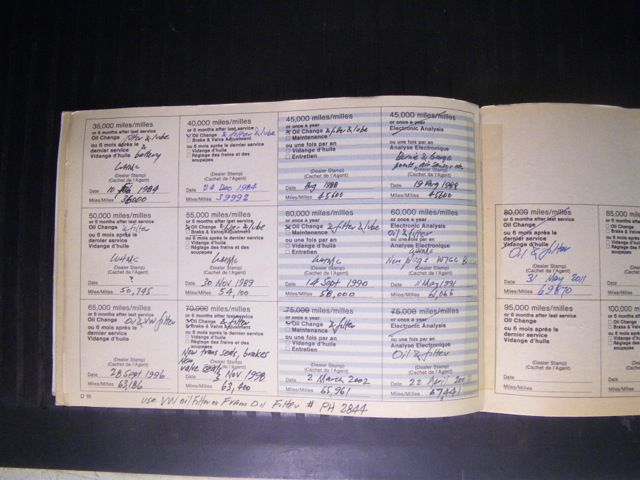 35,000 miles/milles
or 6 months after last service
Oil Change filter & lube
ou 6 mois après le
dernier service &
Vidange d'huile battery
(Dealer Stamp)
(Cachet de l'Agent)
Date 1984
Miles/Milles 36000
40,000 miles/milles
or 6 months after last service
Oil Change & filter & lube
Brake & Valve Adjustment
ou 6 mois après le dernier service
Vidange d'huile
Réglage des freins et des
soupapes
(Dealer Stamp)
(Cachet de l'Agent)
Date 24 Dec 1984
Miles/Milles 39992
45,000 miles/milles
or once a year
Oil Change & filter & lube
Maintenance
ou une fois par an
Vidange d'huile
Entretien
(Dealer Stamp)
(Cachet de l'Agent)
Date Aug 1988
Miles/Milles 45600
45,000 miles/milles
or once a year
Electronic Analysis
ou une fois par an
Analyse Electronique
(Dealer Stamp)
(Cachet de l'Agent)
Date 19 Aug 1988
Miles/Milles 45600
50,000 miles/milles
or 6 months after last service
Oil Change & filter
ou 6 mois après le
dernier service
Vidange d'huile
(Dealer Stamp)
(Cachet de l'Agent)
Date ?
Miles/Milles 50,745
55,000 miles/milles
or 6 months after last service
Oil Change & filter & lube
Brake & Valve Adjustment
ou 6 mois après le dernier service
Vidange d'huile
Réglage des freins et des
soupapes
(Dealer Stamp)
(Cachet de l'Agent)
Date 30 Nov 1989
Miles/Milles 54,100
60,000 miles/milles
or once a year
Oil Change & filter & lube
Maintenance
ou une fois par an
Vidange d'huile
Entretien
(Dealer Stamp)
(Cachet de l'Agent)
Date 14 Sept 1990
Miles/Milles 58,000
60,000 miles/milles
or once a year
Electronic Analysis
Oil & filter
ou une fois par an
Analyse Electronique
New plugs W7CC
(Dealer Stamp)
(Cachet de l'Agent)
Date 11 May 1991
Miles/Milles 61,066
65,000 miles/milles
or 6 months after last service
Oil Change Oil & VW filter
ou 6 mois après le
dernier service
Vidange d'huile
(Dealer Stamp)
(Cachet de l'Agent)
Date 28 Sept 1996
Miles/Milles 63,186
70,000 miles/milles
or 6 months after last service
Oil Change & filter
Brake & Valve Adjustment
ou 6 mois après le dernier service
Vidange d'huile
Réglage des freins et des
soupapes
New trans seals, brakes
New
valve seals
(Dealer Stamp)
(Cachet de l'Agent)
Date 3 Nov 1998
Miles/Milles 63,400
75,000 miles/milles
or once a year
Oil Change & filter
Maintenance
ou une fois par an
Vidange d'huile
Entretien
(Dealer Stamp)
(Cachet de l'Agent)
Date 2 March 2002
Miles/Milles 65,961
75,000 miles/milles
or once a year
Electronic Analysis
ou une fois par an
Analyse Electronique
Oil & filter
(Dealer Stamp)
(Cachet de l'Agent)
Date 22 April
Miles/Milles 67,441
D 16
use VW oil filter or Fram Oil Filter # PH 2844
80,000 miles/milles
or 6 months after last service
Oil Change
ou 6 mois après le
dernier service
Vidange d'huile
Oil & filter
(Dealer Stamp)
(Cachet de l'Agent)
Date 31 May 2011
Miles/Milles 69870
85,000
or 6 months
Oil Change
Brake &
ou 6 mois
Vidange
95,000 miles/milles
or 6 months after last service
Oil Change
ou 6 mois après le
dernier service
Vidange d'huile
(Dealer Stamp)
(Cachet de l'Agent)
Date
Miles/Milles
100,000
or 6 months
Oil Change
Brake &
ou 6 mois
Vidange